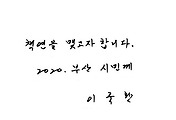 책연을 맺고자 합니다.
2020. 부산 시민께
이국환